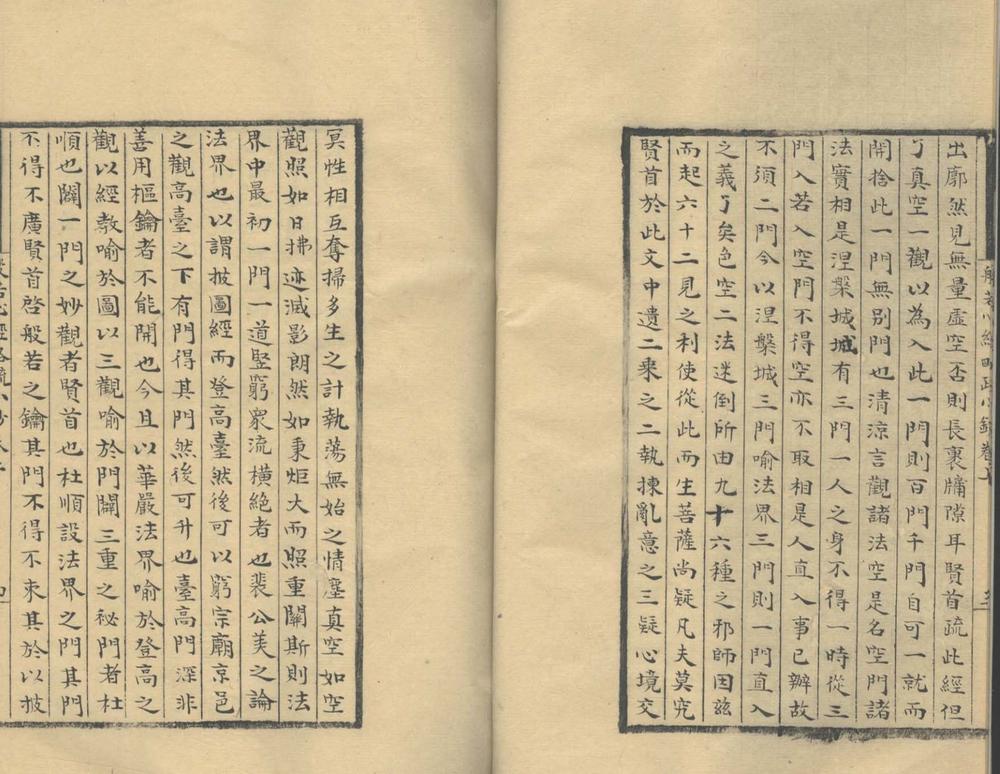 出廓然見無量虛空否則長裹牖隙耳賢首疏此經但
了真空一觀以為入此一門則百門千門自可一就而
開捨此一門無別門也清涼言觀諸法空是名空門諸
法實相是涅槃城城有三門一人之身不得一時從三
門入若入空門不得空亦不取相是人直入事已辦故
不須二門今以涅槃城三門喻法界三門則一門直入
之義了矣色空二法迷倒所由九十六種之邪師因茲
而起六十二見之利使從此而生菩薩尚疑凡夫莫究
賢首於此文中遣二乘之二執揀亂意之三疑心境交
冥性相互奪掃多生之計執蕩無始之情塵真空如空
觀照如日拂迹滅影朗然如秉炬火而照重關斯則法
界中最初一門一道竪窮衆流橫絕者也裴公美之論
法界也以謂披圖經而登高臺然後可以窮宗廟京邑
之觀高臺之下有門得其門然後可升也臺高門深非
善用樞鑰者不能開也今且以華嚴法界喻於登高之
觀以經教喻於圖以三觀喻於門闢三重之祕門者杜
順也闢一門之妙觀者賢首也杜順設法界之門其門
不得不廣賢首啓般若之鑰其門不得不束其於以披